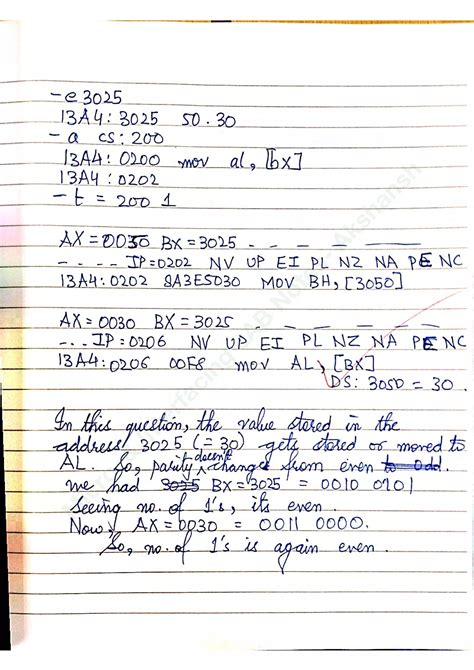 - e 3025
13A4 : 3025 50 . 30
- a cs : 200
13A4 : 0200 mov al, [bx]
13A4 : 0202
- t = 200 1
AX = 0030 BX = 3025 _ _ _ _ _
- - - - IP=0202 NV UP EI PL NZ NA PE NC
13A4 : 0202 8A3E5030 MOV BH, [3050]
AX = 0030 BX = 3025 _ _ _ _ _
- - . IP = 0206 NV UP EI PL NZ NA PE NC
13A4 : 0206 00F8 mov AL, [BX]
DS : 3050 = 30 .
In this question, the value stored in the
address 3025 (= 30) gets stored or moved to
AL. So, parity doesn't change from even to odd.
We had 3025 BX = 3025 = 0010 0101
Seeing no. of 1's, its even.
Now, AX = 0030 = 0011 0000.
So, no. of 1's is again even.